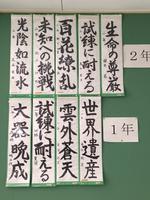 2年
生命の尊厳
試練に耐える
百花繚乱
未知への挑戦
光陰如流水
1年
世界遺産
雲外蒼天
試練に耐える
大器晩成